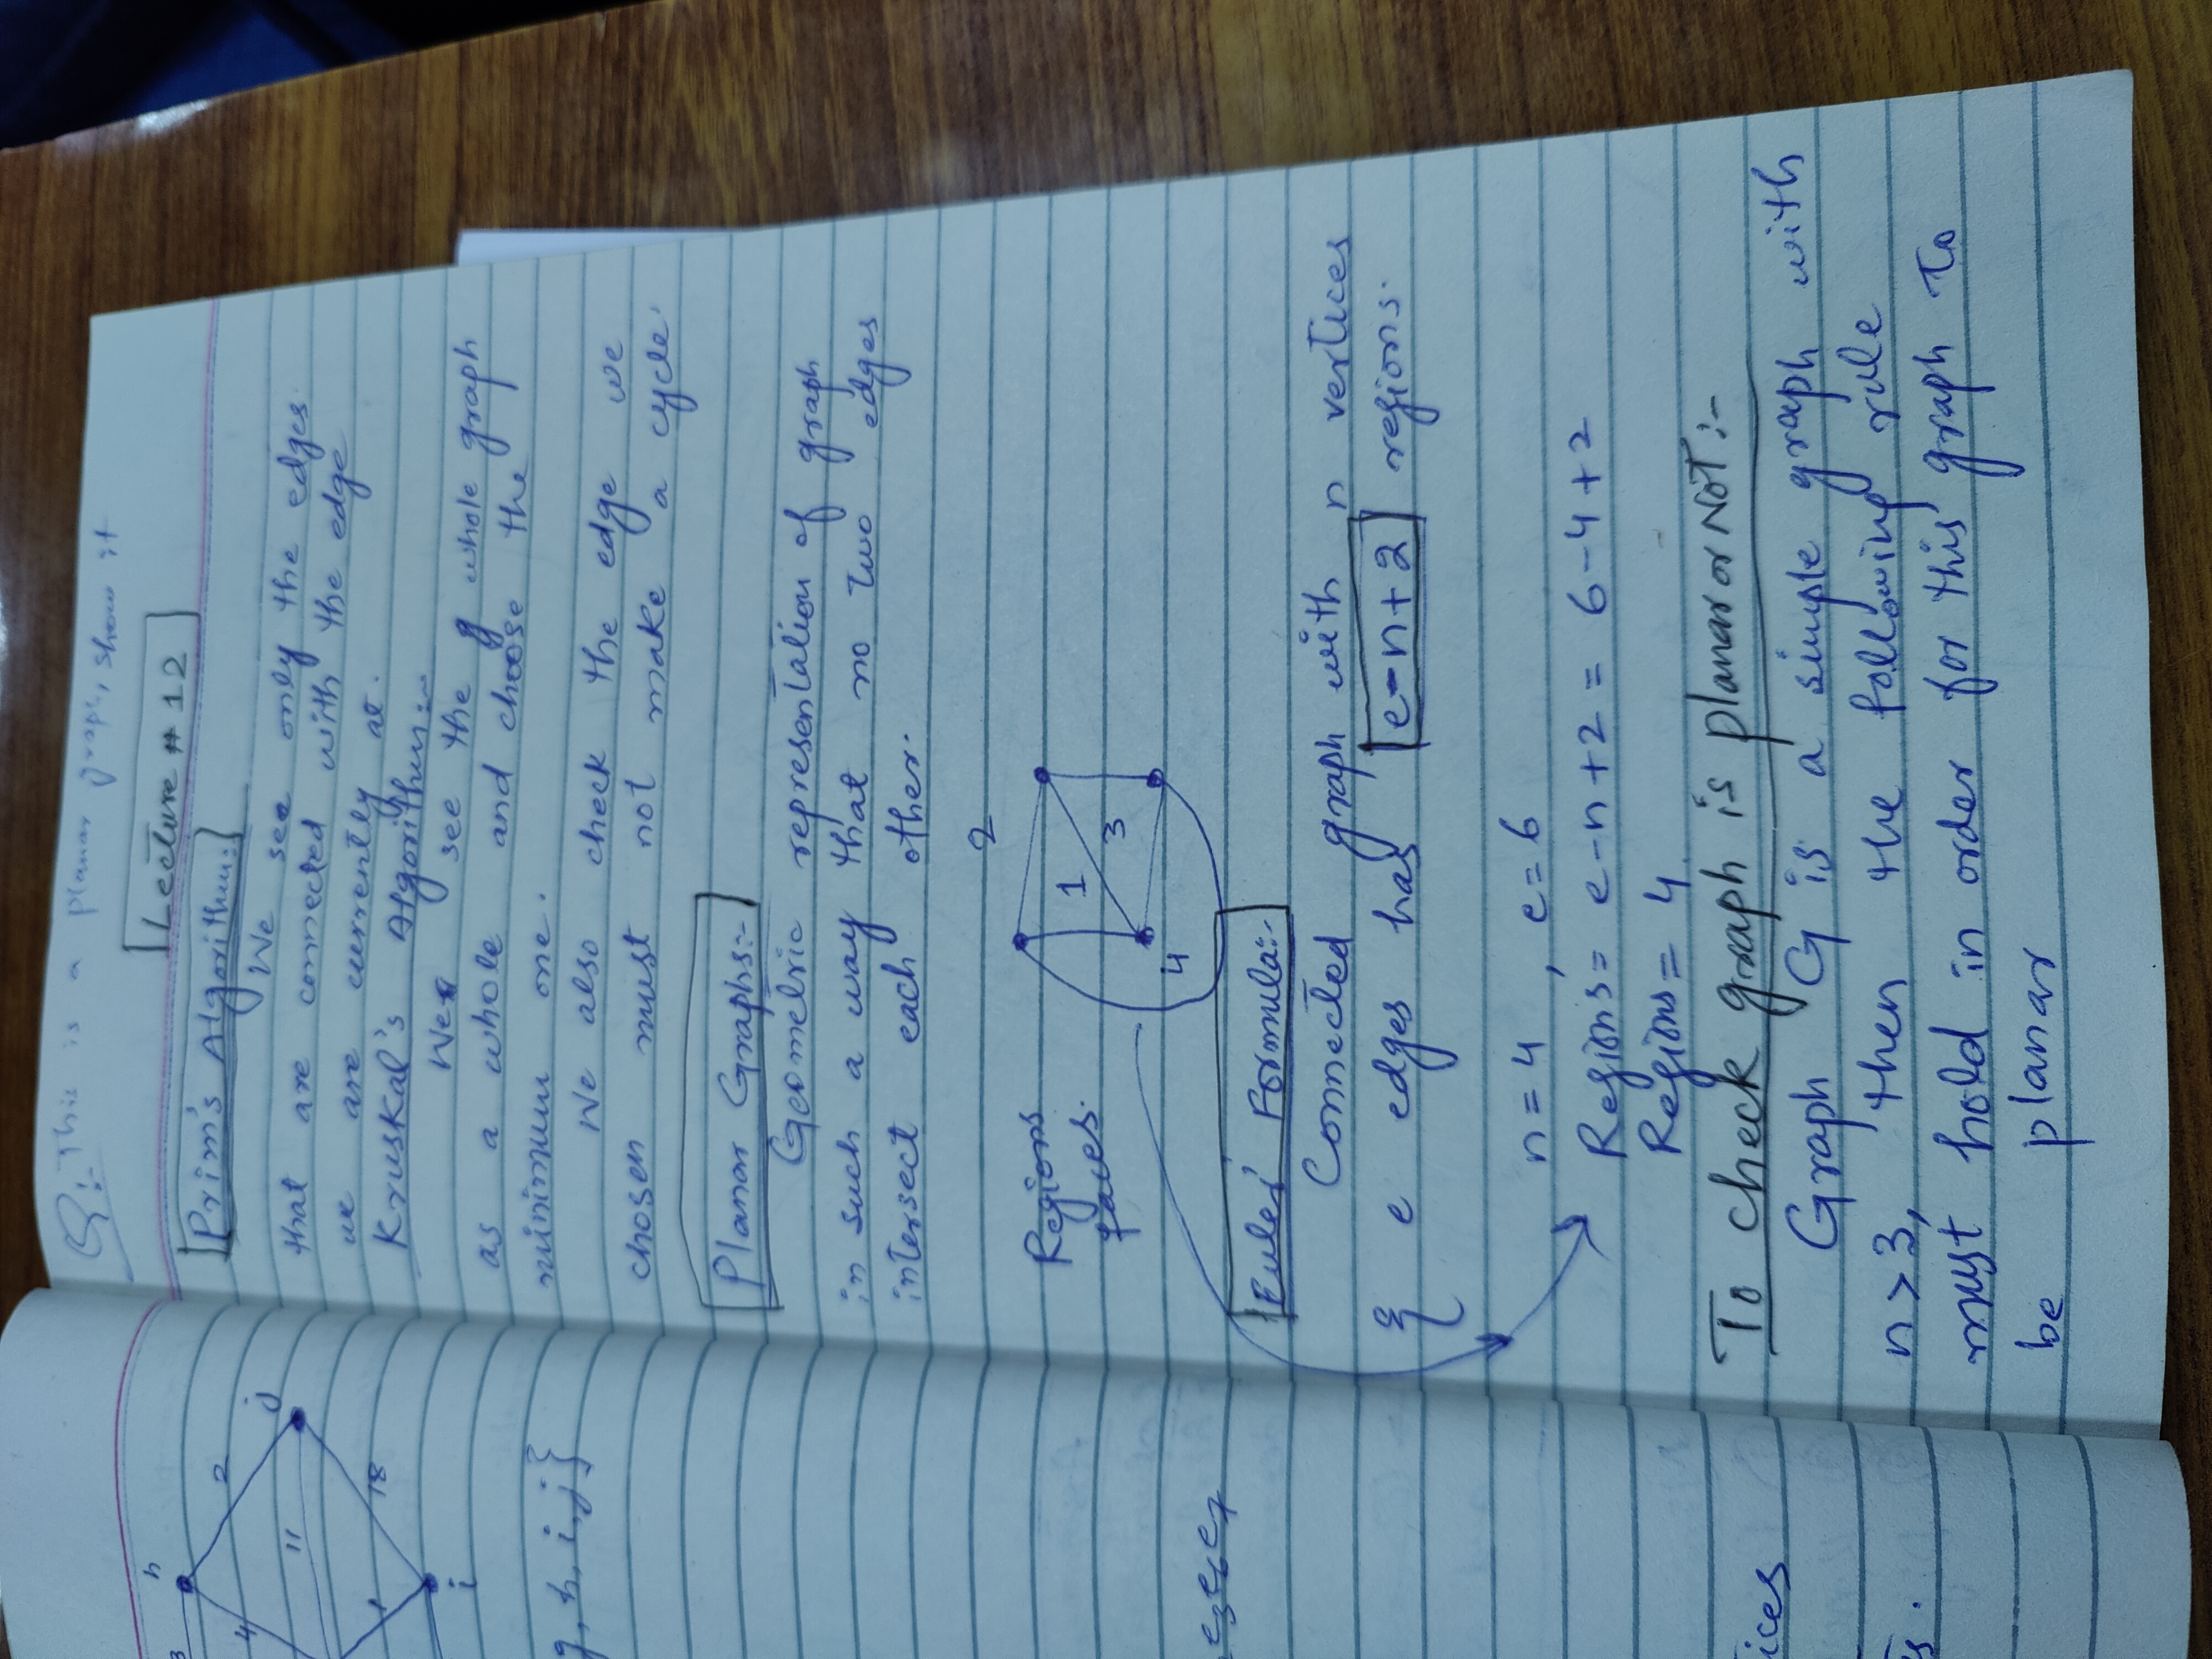 Q:- This is a planar graph, show it
Lecture # 12
Prim's Algorithm:-
We see only the edges.
that are connected with the edge
we are currently at.
Kruskal's Algorithm:-
We see the g whole graph
as a whole and choose the
minimum one.
We also check the edge we
chosen must not make a cycle.
Planar Graphs:-
Geometric representation of graph
in such a way that no two edges
intersect each other.
2
Regions
faces.
1
3
4
Euler' Formula:-
Connected graph with n vertices
& e edges has e-n+2 regions.
n=4, e=6
Regions= e-n+2 = 6-4+2
Regions= 4
To check graph is planar or Not:-
Graph G is a simple graph with
n>3, then the following rule
must hold in order for this graph to
be planar
h
2
j
3
4
11
18
1
i
g, h, i, j}
e3e6e7
ices